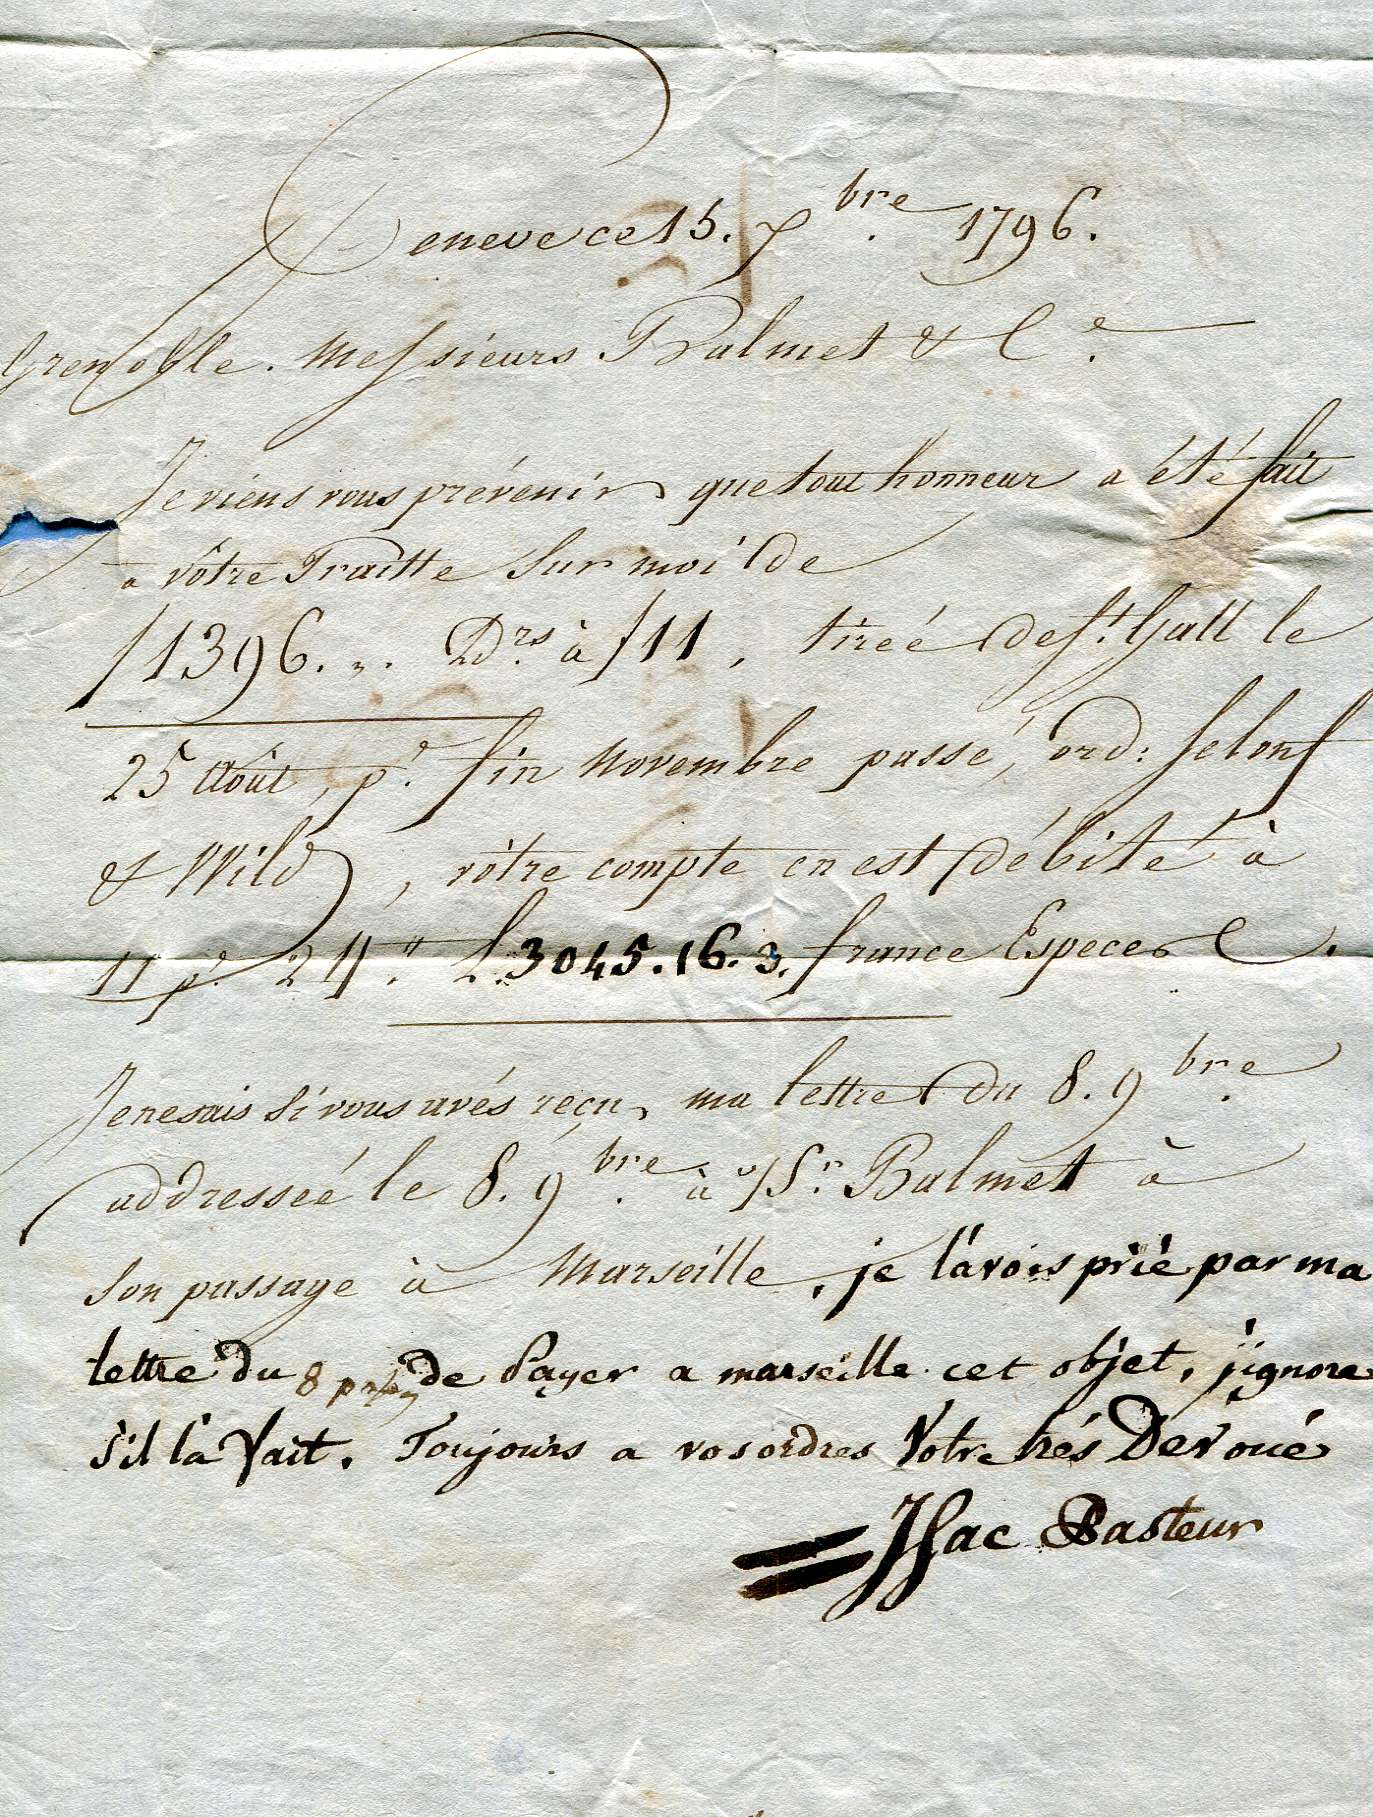 Geneve ce 15. Xbre. 1796.
Grenoble. Messieurs Balmet & Ce.
Je viens vous prévenir que tout honneur a été fait
a vôtre Traitte Sur moi de
f 1396. ". Drs. à f 11, tireé de St. Gall le
25 Aoûst, pr. fin Novembre passé, ord: Selonf
& Wild, vôtre compte en est débité à
11 pr. 24.'' L.3045.16.3. france Especes C.
Je ne sais si vous avés reçu, ma lettre du 8. 9bre.
addresseé le 8. 9bre. à Sr. Balmet à
Son passage à Marseille, je l'avois prié par ma
lettre du 8 de Payer a marseille cet objet, j'ignore
s'il l'a fait. Toujours a vos ordres Votre très Dévoué
Isac Pasteur